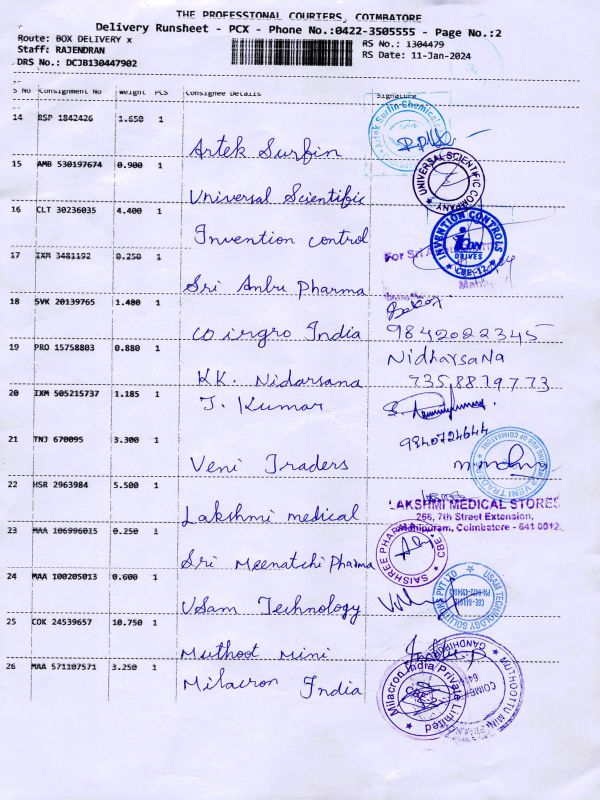 THE PROFESSIONAL COURIERS, COIMBATORE
Delivery Runsheet - PCX - Phone No.:0422-3505555 - Page No.:2
Route: BOX DELIVERY x RS No.: 1304479
Staff: RAJENDRAN RS Date: 11-Jan-2024
DRS No.: DCJB130447902
S No Consignment No Weight PCS Consignee Details Signature
14 RSP 1842426 1.650 1
Artek Surfin
Artek Surfin Chemicals
15 AMB 530197674 0.900 1
Universal Scientific
UNIVERSAL SCIENTIFIC COMPANY
16 CLT 30236035 4.400 1
Invention control
INVENTION CONTROLS
iCON
DRIVES
CBE-12
17 IXM 3481192 0.250 1
Sri Anbu Pharma
For Sri
18 SVK 20139765 1.480 1
Coirgro India 9842022345
19 PRO 15758803 0.880 1
KK. Nidarsana
Nidharsana
7358819773
20 IXM 505215737 1.185 1
J. Kumar
9840724644
21 TNJ 670095 3.300 1
Veni Traders
22 HSR 2963984 5.500 1
Lakshmi medical
LAKSHMI MEDICAL STORES
266, 7th Street Extension,
Coimbatore - 641 0012
23 MAA 106996015 0.250 1
Sri Meenatchi Pharma
SAISHREE PHARMA CBE
24 MAA 100205013 0.600 1
USam Technology
USAM TECHNOLOGY SOLUTIONS PVT LTD
25 COK 24539657 10.750 1
Muthoot Mini
MUTHOOTTU MINI
26 MAA 571107571 3.250 1
Milacron India
Milacron India Private Limited